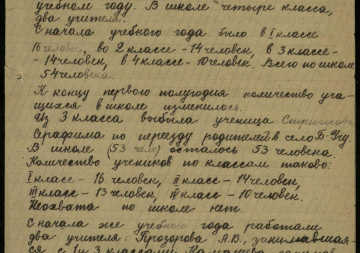 учебном году. В школе четыре класса,
два учителя.
С начала учебного года было в I классе
16 человек, во 2 классе - 14 человек, в 3 классе -
- 14 человек, в 4 классе - 10 человек. Всего по школе
54 человека.
К концу первого полугодия количество уча-
щихся в школе изменилось.
Из 3 класса выбыла ученица
Серафима по переезду родителей в село Б-
В школе (53 чел) осталось 53 человека.
Количество учеников по классам таково:
I класс - 16 человек, II класс - 14 человек,
III класс - 13 человек, IV класс - 10 человек.
Неохвата по школе нет.
С начала же учебного года работали
два учителя: Прозорова А.В., занимавшая-
ся с 1 и 3 классами